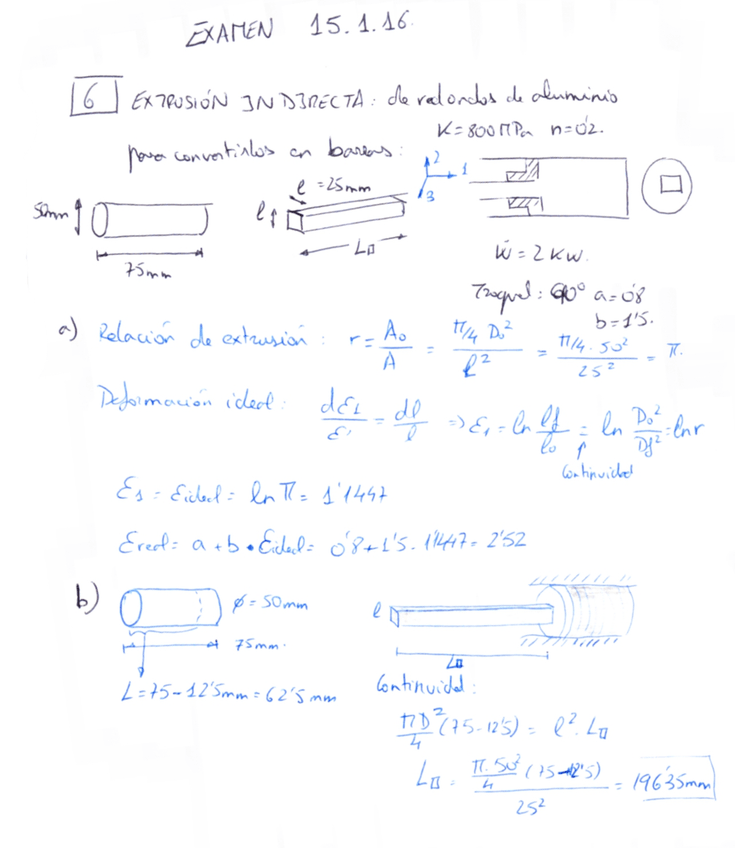 EXAMEN 15.1.16.
6 EXTRUSIÓN INDIRECTA: de redondos de aluminio
K=800MPa n=0'2.
para convertirlos en barras:
50mm
75mm
l =25mm
l
L□
2
1
3
Ẇ = 2 KW.
Troquel: 90° a=0'8
b=1'5.
a) Relación de extrusión: r = A₀/A = (π/4 D₀²)/l² = (π/4 · 50²)/25² = π.
Deformación ideal: dε₁/ε' = dl/l => ε₁ = ln lf/l₀ = ln D₀²/Df² = ln r
Continuidad
ε₁ = εideal = ln π = 1'1447
εreal = a + b • εideal = 0'8+1'5 · 1'1447 = 2'52
b)
ø = 50mm
75mm.
L = 75 - 12'5mm = 62'5 mm
l
L□
Continuidad:
πD²/4 (75-12'5) = l² · L□
L□ = (π·50²/4 (75-12'5))/25² = 196'35mm